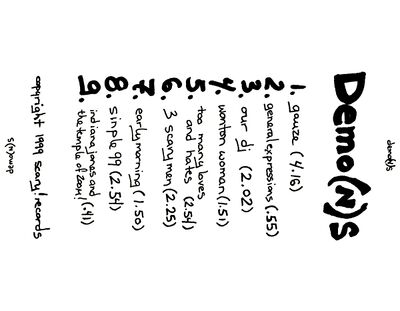 Demo(N)S
1. gauze (4.16)
2. general expressions (.55)
3. our dj (2.02)
4. wonton woman (1.51)
5. too many loves
and hates (2.54)
6. 3 scary men (2.25)
7. early morning (1.50)
8. simple 99 (2.54)
9. indiana jones and
the temple of zoom! (.41)
copyright 1999 scary! records
demo(n)s